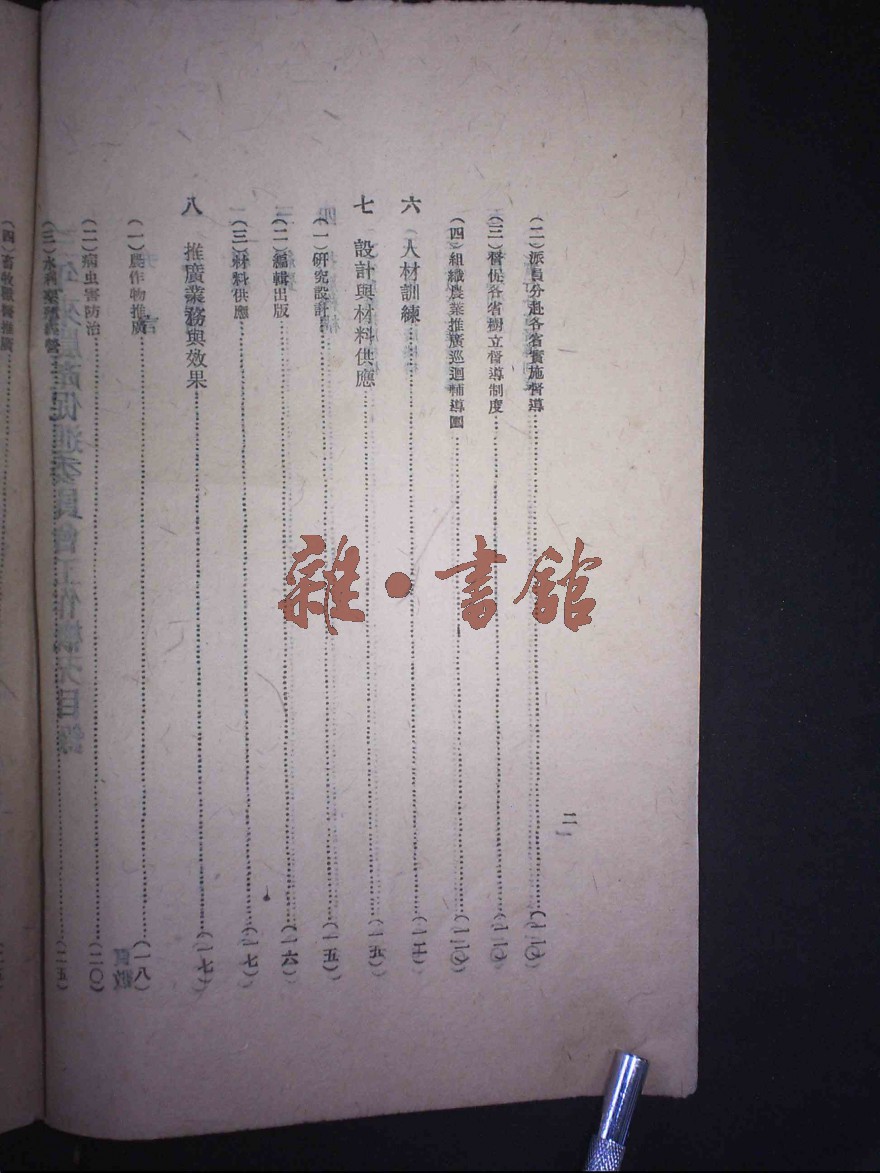 二
(二)派員分赴各省實施督導……(一〇)
(三)督促各省樹立督導制度……
(四)組織農業推廣巡迴輔導團……
六 人材訓練……
七 設計與材料供應……(一五)
(一)研究設計……(一五)
(二)編輯出版……(一六)
(三)材料供應……(一七)
八 推廣業務與效果……(一七)
(一)農作物推廣……(一八)
(二)病虫害防治……(二〇)
(三)……(二五)
(四)畜牧獸醫推廣
雜·書館